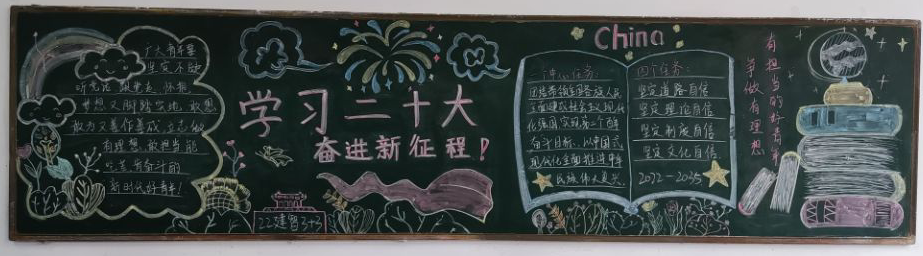 广大青年要
坚定不移
听党话、跟党走,怀抱
梦想又脚踏实地,敢想
敢为又善作善成,立志做
有理想、敢担当、能
吃苦、肯奋斗的
新时代好青年!
学习二十大
奋进新征程!
22建智3+3
China
一个中心任务:
团结带领全国各族人民
全面建成社会主义现代
化强国,实现第二个百年
奋斗目标,以中国式
现代化全面推进中华
民族伟大复兴。
四个自信:
坚定道路自信
坚定理论自信
坚定制度自信
坚定文化自信
2022-2035
有担当的好青年
争做有理想